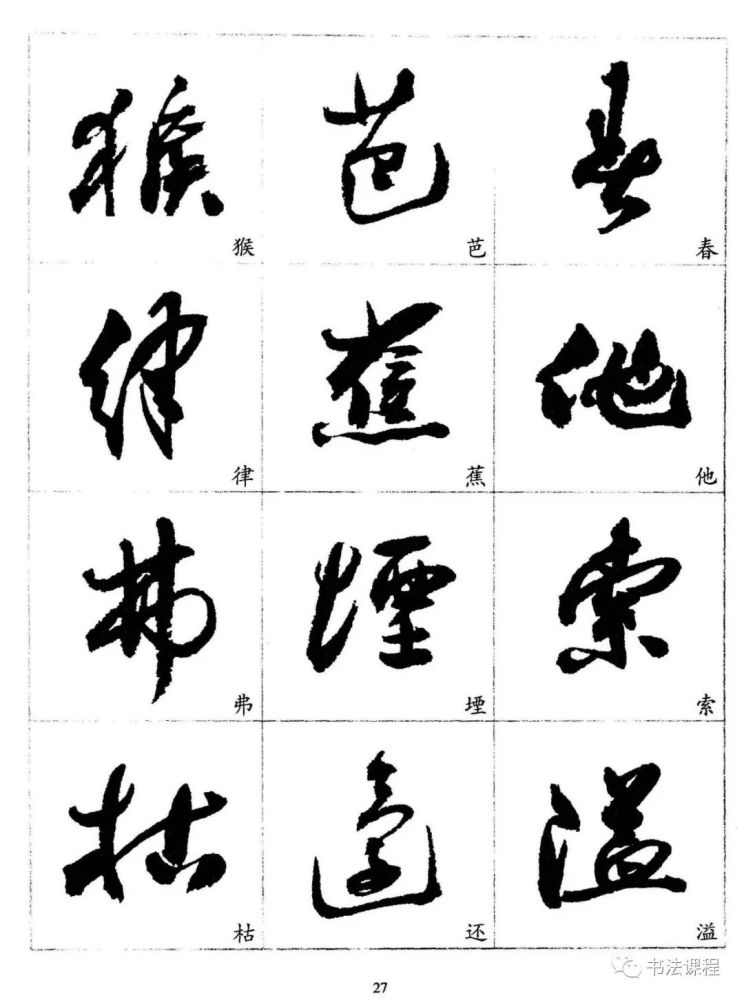 春
芭
猴
他
蕉
律
索
堙
弗
溢
还
枯
27
书法课程